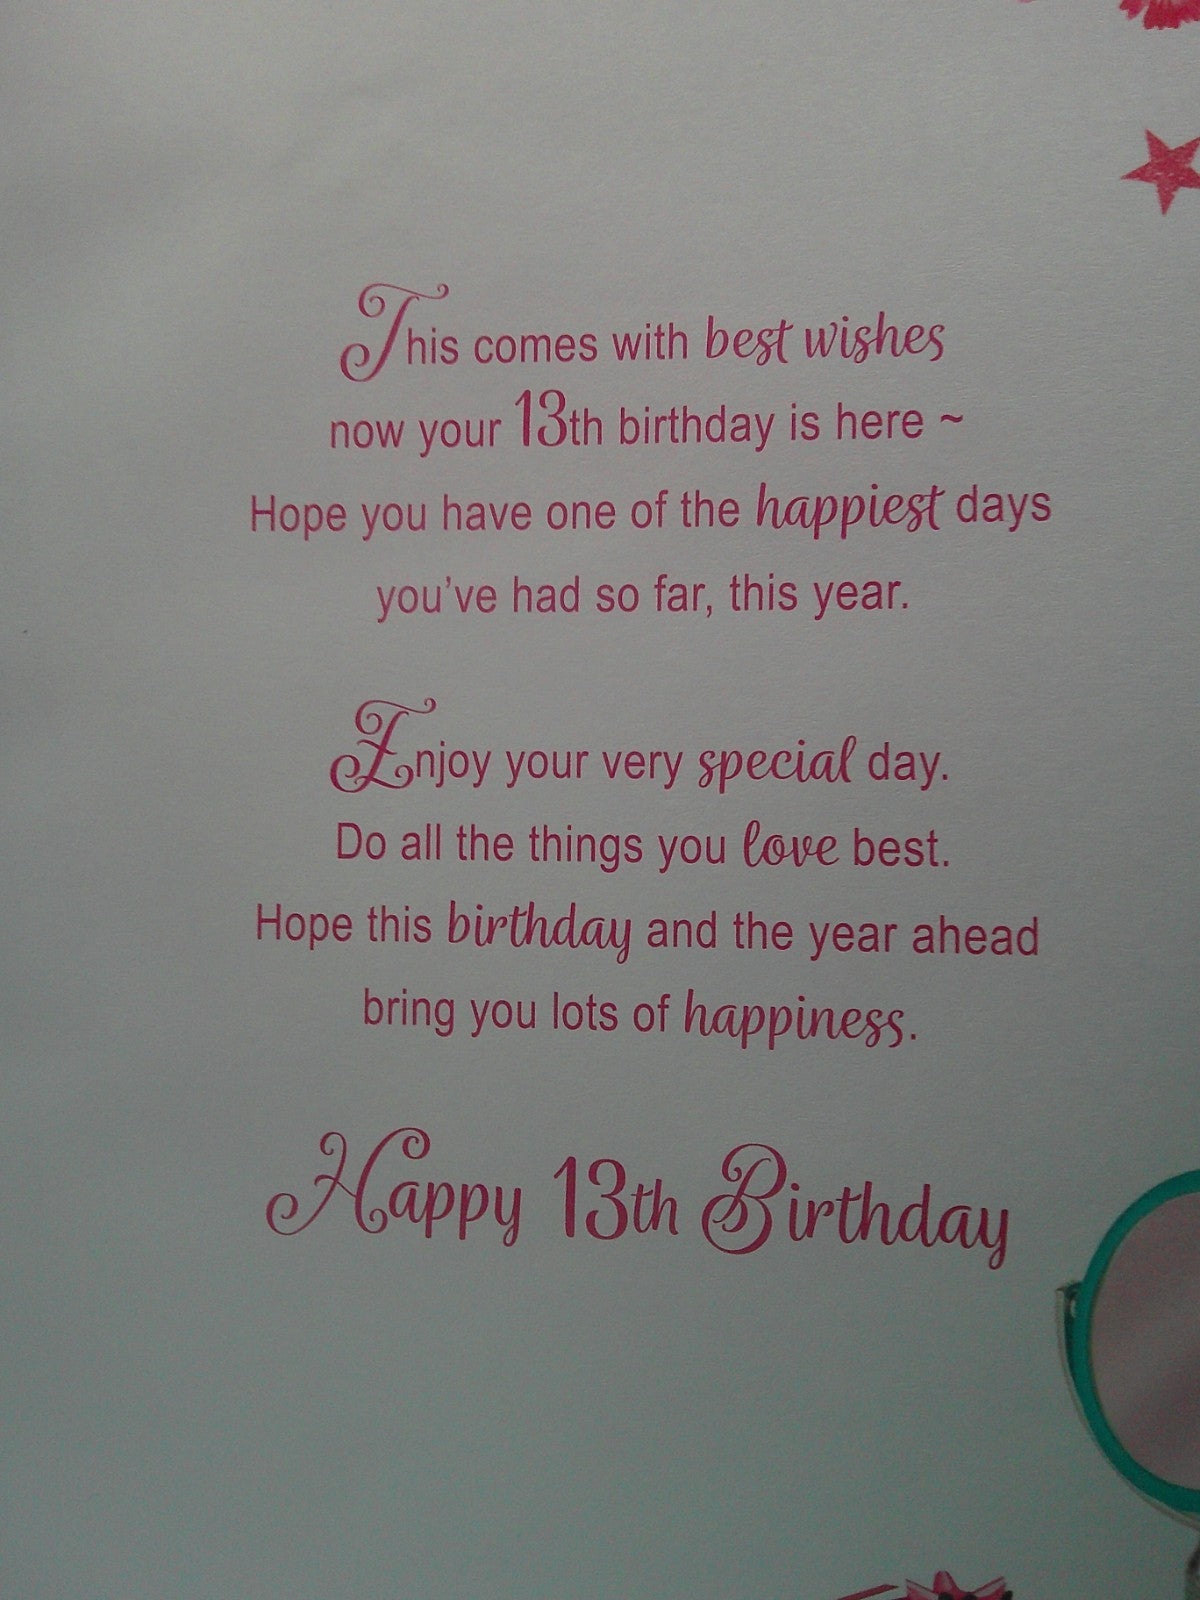 This comes with best wishes
now your 13th birthday is here ~
Hope you have one of the happiest days
you've had so far, this year.
Enjoy your very special day.
Do all the things you love best.
Hope this birthday and the year ahead
bring you lots of happiness.
Happy 13th Birthday